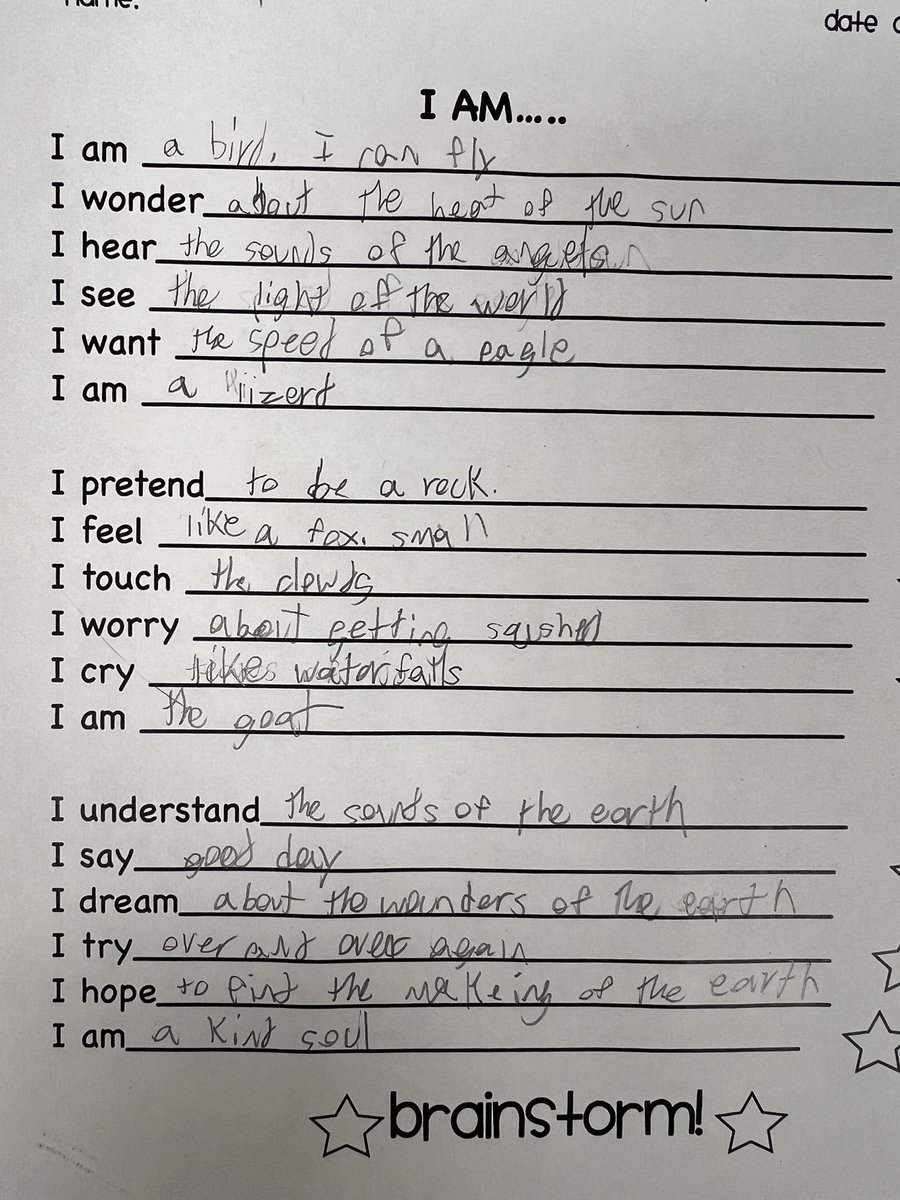 name:
date
I AM.....
I am a bird. I can fly
I wonder about the heat of the sun
I hear the sounds of the
I see the light of the world
I want the speed of a eagle
I am a
I pretend to be a rock.
I feel like a fox. small
I touch the clowds
I worry about getting sqishd
I cry likes watorfalls
I am the goat
I understand the sounds of the earth
I say good day
I dream about the wanders of the earth
I try over and over again
I hope to find the makeing of the earth
I am a kind soul
brainstorm!